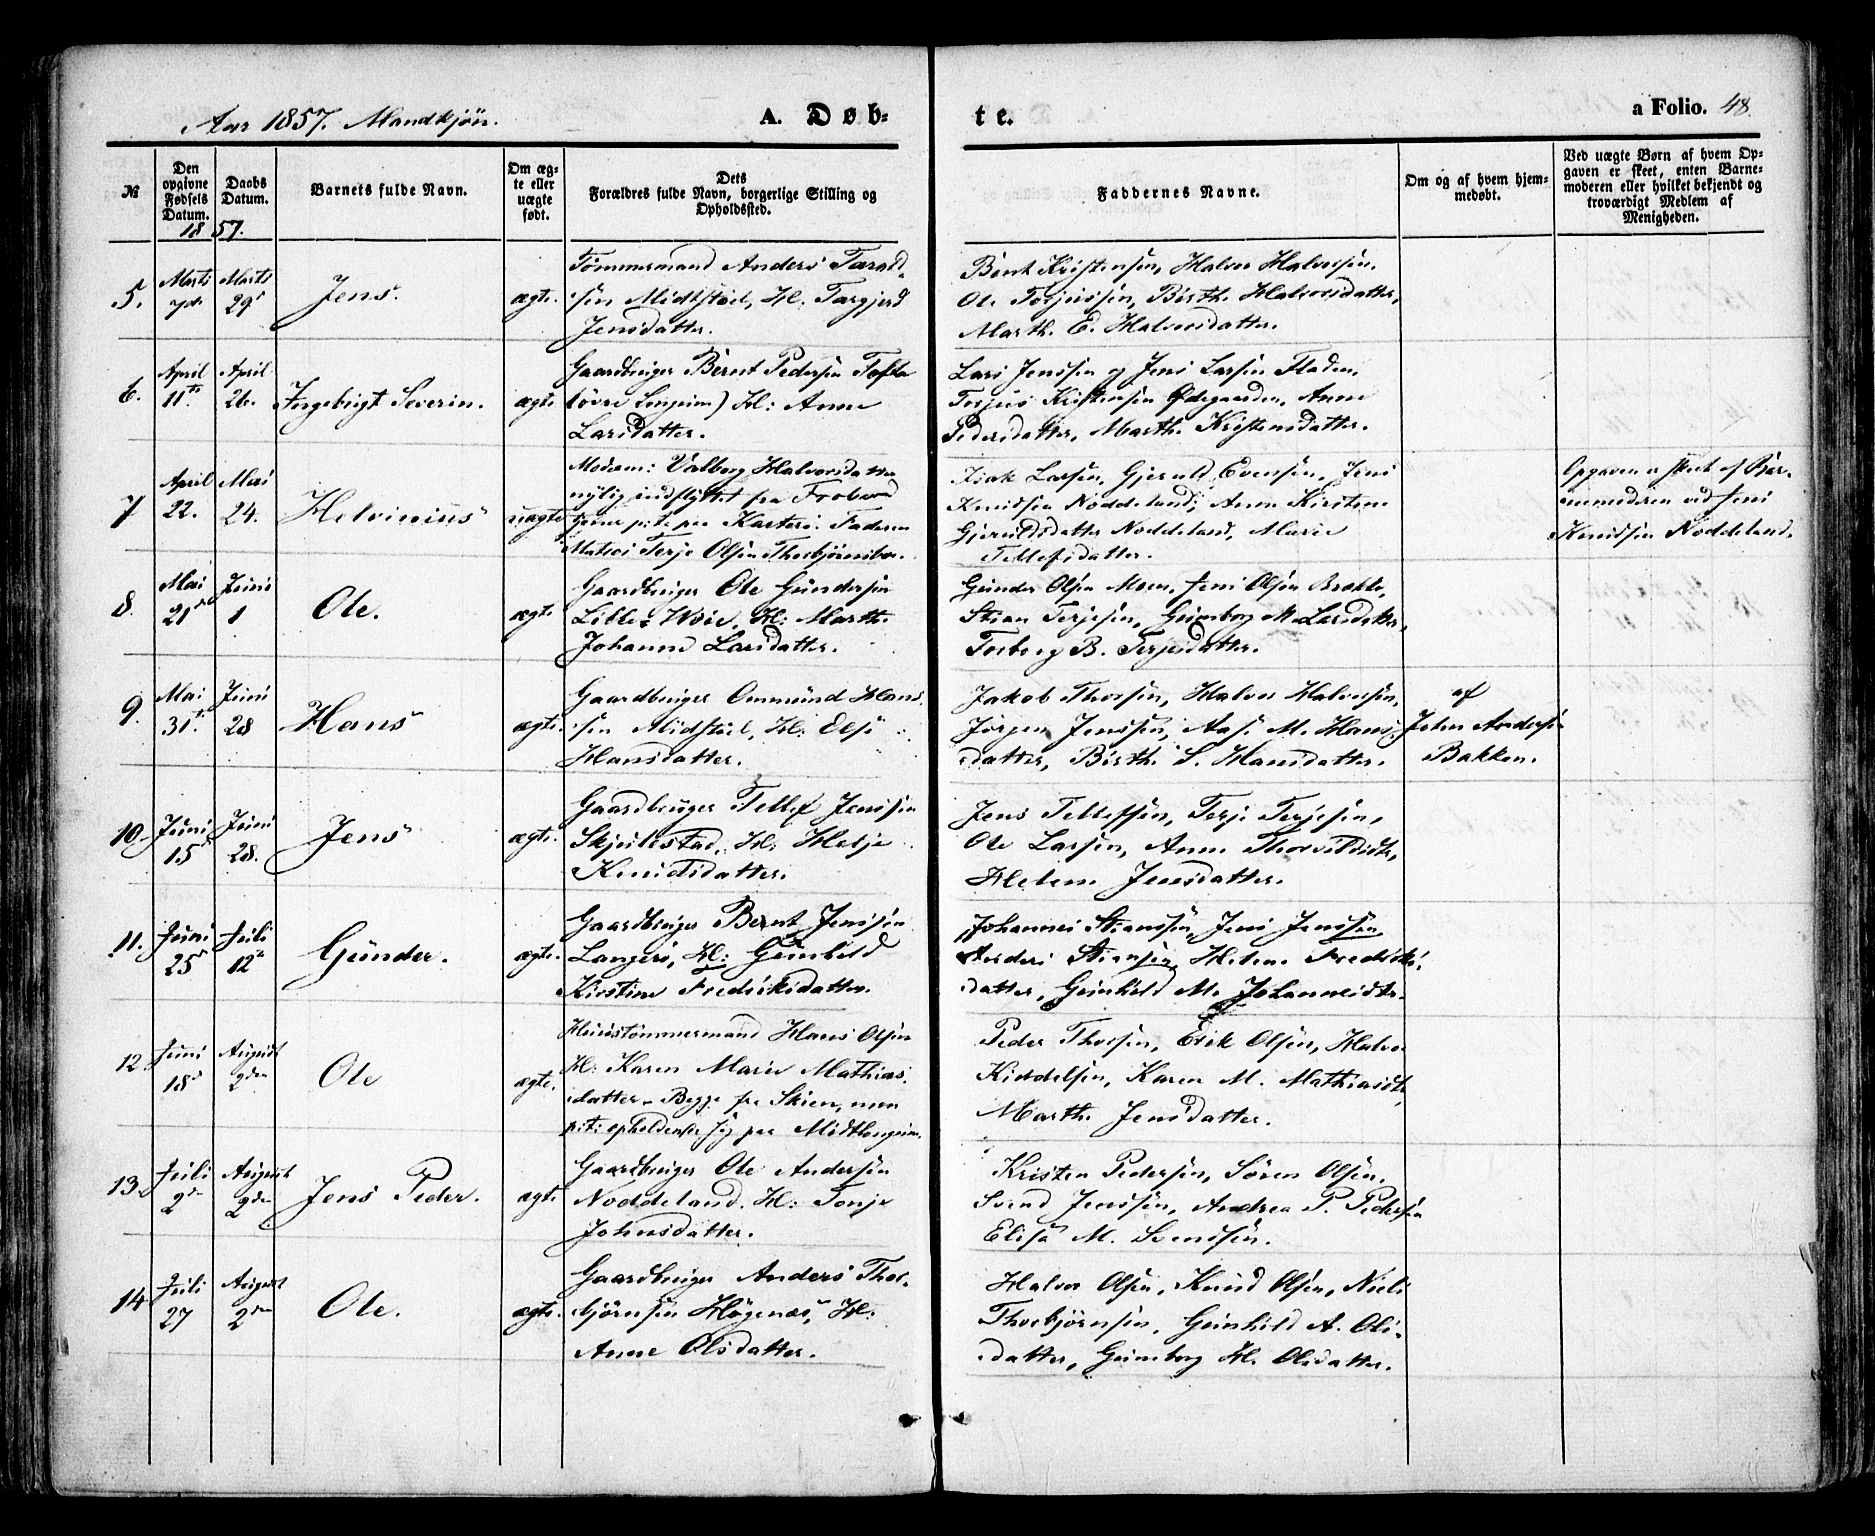 Aar 1857. Mandkjön.
A. Døb-
te.
a Folio. 48.
№
Den opgivne Fødsels Datum.
Daabs Datum.
1857.
Barnets fulde Navn.
Om ægte eller uægte født.
Dets
Forældres fulde Navn, borgerlige Stilling og Opholdssted.
Faddernes Navne.
Om og af hvem hjemmedøbt.
Ved uægte Børn af hvem Opgaven er skeet, enten Barnemoderen eller hvilket bekjendt og troværdigt Medlem af Menigheden.
5. Marts 7de Marts 29 Jens. ægte.
Tömmermand Anders Tarald-
sen Midtstöd, H. Targjerd
Jensdatter.
Bent Kristensen, Halvor Halvorsen,
Ole Torjussen, Birthe Halvorsdatter,
Marth. E. Halvorsdatter.
6. April 11te April 26. Ingebrigt Severin. ægte
Gaardbruger Bernt Pedersen Tofte
(övre Longum) H: Anne
Larsdatter.
Lars Jenssen og Jens Larsen Fladen,
Torjus Kristensen Ødegaarden, Anne
Pedersdatter, Marth. Kristensdatter.
7 April 22. Mai 24. Helvinius uægte
Moderen: Valborg Halvorsdatter
nylig indflyttet fra Froland
Faderen
Matros Terje Olsen Thorbjörnsbo.
Isak Larsen, Gjeruld Evensen, Jens
Knudsen Noddeland, Anne Kirstine
Gjeruldsdatter Noddeland, Marie
Tellefsdatter.
Opgaven er skeet af Bar-
nemoderen ved Jens
Knudsen Noddeland.
8. Mai 21de Juni 1 Ole. ægte
Gaardbruger Ole Gundersen
Lille-Wöie, H: Marth.
Johanne Larsdatter.
Gunder Olsen Moen, Jens Olsen Brække,
Stian Terjesen, Gunborg M. Larsdatter,
Torborg B. Terjesdatter.
9. Mai 31te Juni 28 Hans ægte.
Gaardbruger Ommund Han-
sen Midstöd, H: Else
Hansdatter.
Jakob Thorsen, Halvor Halvorsen,
Jörgen Jenssen, Aase M. Hans-
datter, Birthe S. Hansdatter.
af
John Andersen
Bakken.
10. Juni 15 Juni 28. Jens ægte.
Gaardbruger Tellef Jenssen
Skjulestad, H: Helje
Knudsdatter.
Jens Tellefsen, Terje Terjesen,
Ole Larsen, Anne Thorvaldsdtr,
Helene Jensdatter.
11. Juni 25 Juli 12te Gunder. ægte
Gaardbruger Bernt Jenssen
Langerö, H: Gunhild
Kirstine Fredriksdatter.
Johannes Stiansen, Jens Jenssen
Anders Stiansen, Helene Fredriks-
datter, Gunhild M. Johannesdtr.
12. Juni 18de August 2den Ole ægte.
Huustömmermand Hans Olsen
H: Karen Marie Mathias-
datter - Begge fra Skien, men
p.t. opholdende sig paa Midtlongum.
Peder Thorsen, Erik Olsen, Halvor
Kiddelsen, Karen M. Mathiasdtr,
Marth. Jensdatter.
13. Juli 2den August 2den Jens Peder. ægte
Gaardbruger Ole Andersen
Noddeland. H: Tonje
Johnsdatter.
Kristen Pedersen, Sören Olsen,
Svend Jenssen, Andrea P. Pedersen
Elise M. Svendsen.
14 Juli 27 August 2den Ole. ægte.
Gaardbruger Anders Thor-
björnsen Högenæs, H:
Anne Olsdatter.
Halvor Olsen, Knud Olsen, Niels
Thorbjörnsen, Gunhild A. Ols-
datter, Gunborg H. Olsdatter.